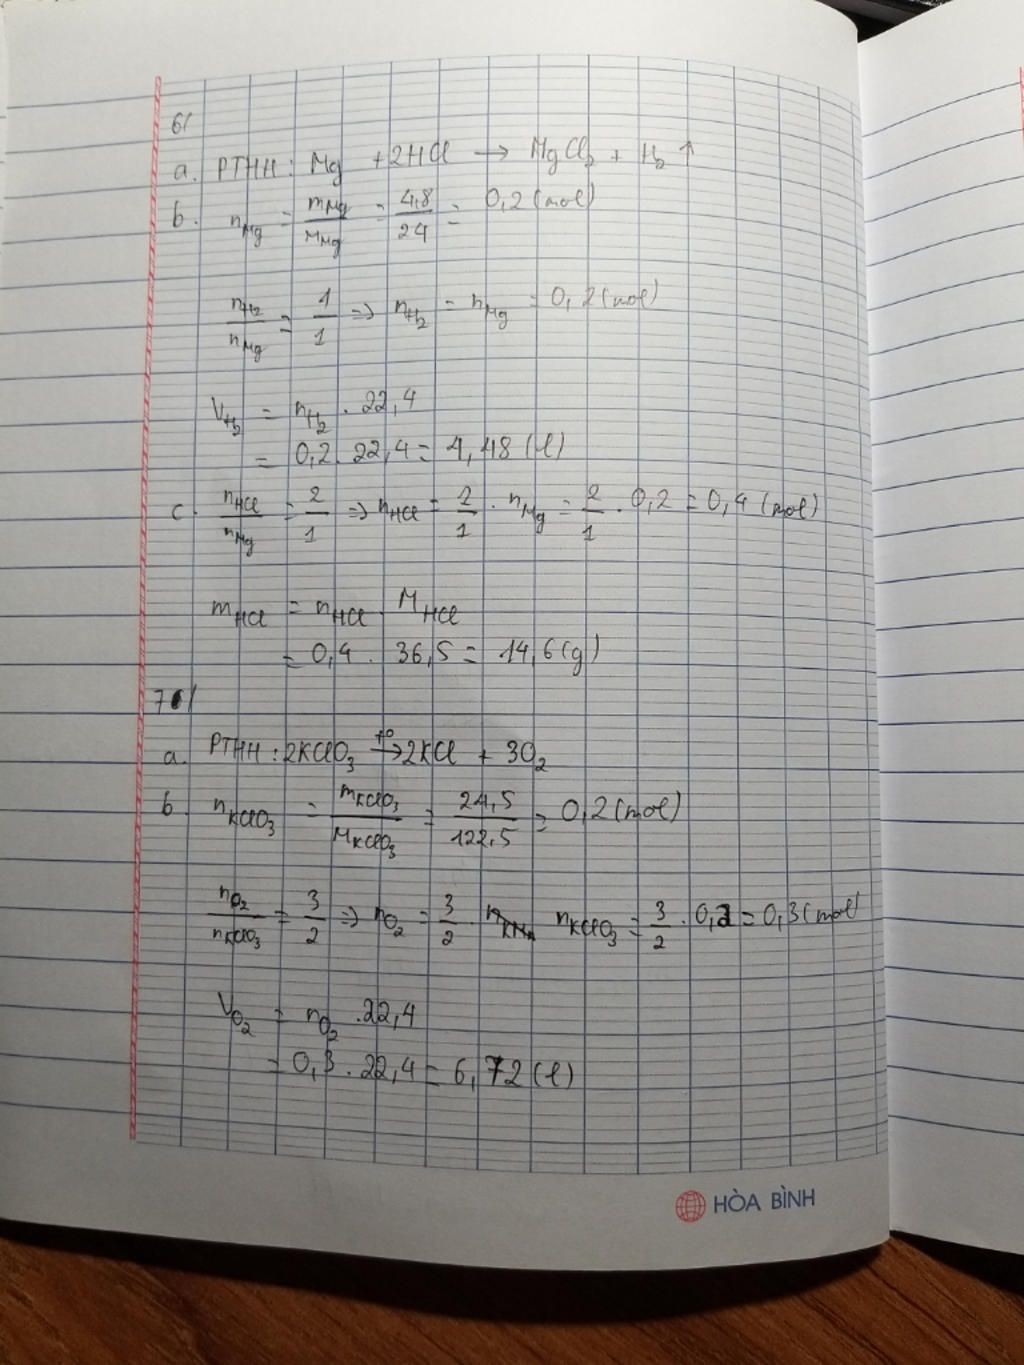 6/
a. PTHH: Mg + 2HCl → MgCl₂ + H₂ ↑
b. nMg = mMg/MMg = 4,8/24 = 0,2 (mol)
nH₂/nMg = 1/1 => nH₂ = nMg = 0,2 (mol)
VH₂ = nH₂ . 22,4
= 0,2 . 22,4 = 4,48 (l)
c. nHCl/nMg = 2/1 => nHCl = 2/1 . nMg = 2/1 . 0,2 = 0,4 (mol)
mHCl = nHCl . MHCl
= 0,4 . 36,5 = 14,6 (g)
7/
a. PTHH: 2KClO₃ →(t°) 2KCl + 3O₂
b. nKClO₃ = mKClO₃/MKClO₃ = 24,5/122,5 = 0,2 (mol)
nO₂/nKClO₃ = 3/2 => nO₂ = 3/2 . nKClO₃ = 3/2 . 0,2 = 0,3 (mol)
VO₂ = nO₂ . 22,4
= 0,3 . 22,4 = 6,72 (l)
HÒA BÌNH